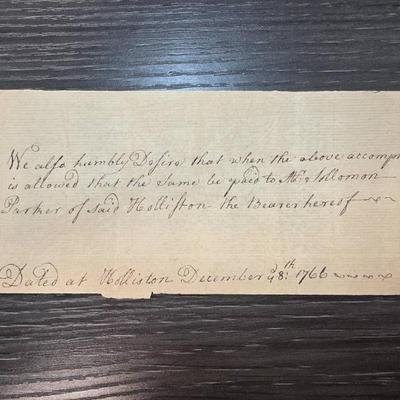 We also humbly Desire that when the above accomp
is allowed that the Same be paid to Mr. Sollomon
Parker of said Holliston the Bearer hereof
Dated at Holliston December ye 8th: 1766